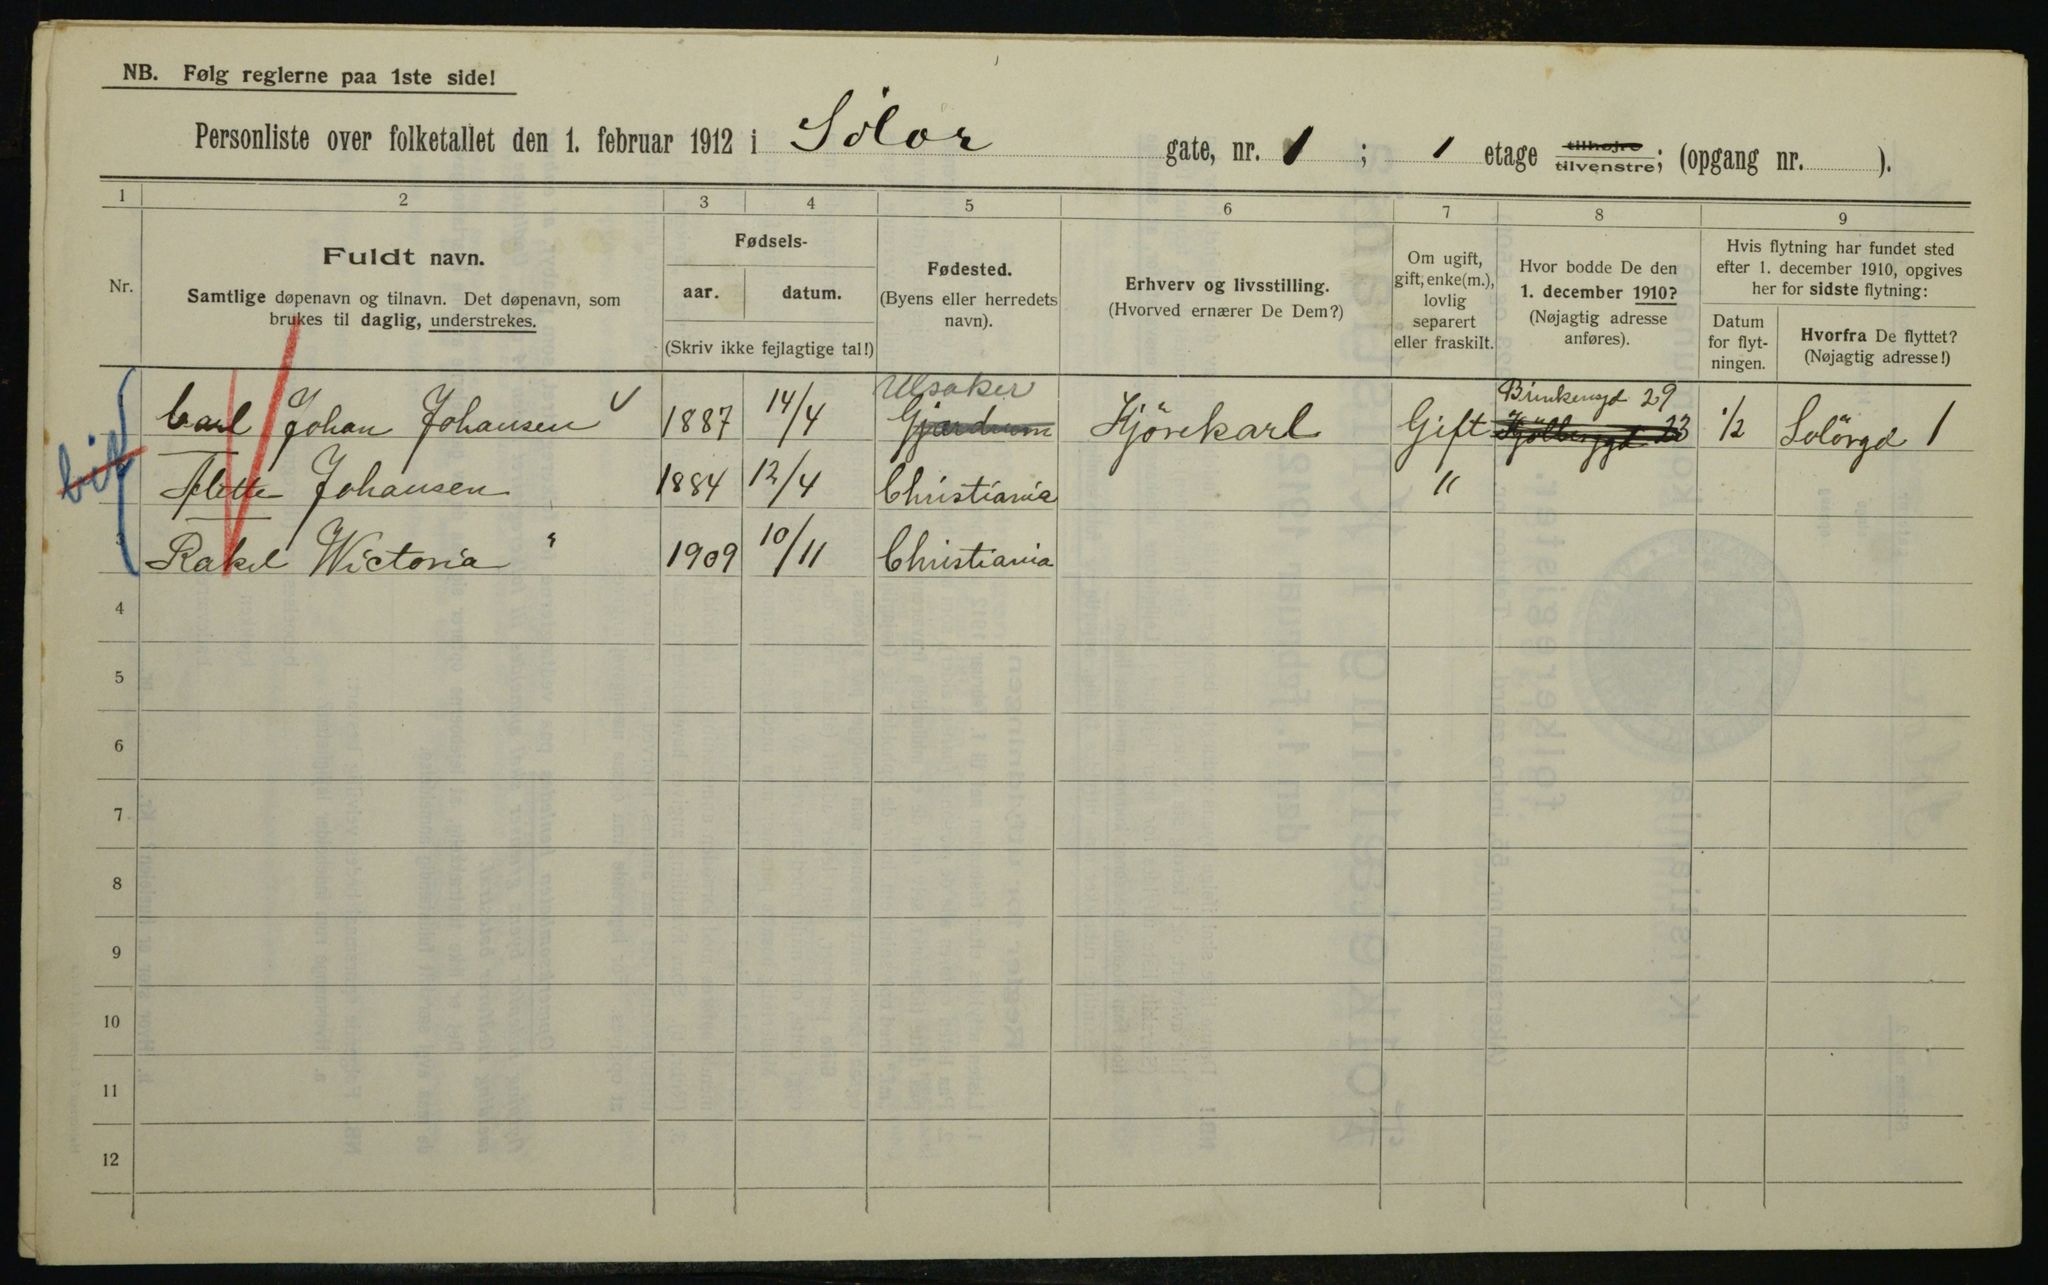 NB. Følg reglerne paa 1ste side!
Personliste over folketallet den 1. februar 1912 i Solør gate, nr. 1 ; 1 etage tilhøjre tilvenstre; (opgang nr. ).
1 2 3 4 5 6 7 8 9
Nr.
Fuldt navn.
Samtlige døpenavn og tilnavn. Det døpenavn, som
brukes til daglig, understrekes.
Fødsels-
aar. datum.
(Skriv ikke fejlagtige tal!)
Fødested.
(Byens eller herredets
navn).
Erhverv og livsstilling.
(Hvorved ernærer De Dem?)
Om ugift,
gift, enke(m.),
lovlig
separert
eller fraskilt.
Hvor bodde De den
1. december 1910?
(Nøjagtig adresse
anføres).
Hvis flytning har fundet sted
efter 1. december 1910, opgives
her for sidste flytning:
Datum
for flyt-
ningen.
Hvorfra De flyttet?
(Nøjagtig adresse!)
Ulsaker Brinkengd 29
Carl Johan Johansen 1887 14/4 Gjerdrum Kjörekarl Gift Kjölberggd 23 1/2 Solörgd 1
Mette Johansen 1884 12/4 Christiania "
3 Rakel Wictoria " 1909 10/11 Christiania
4
5
6
7
8
9
10
11
12